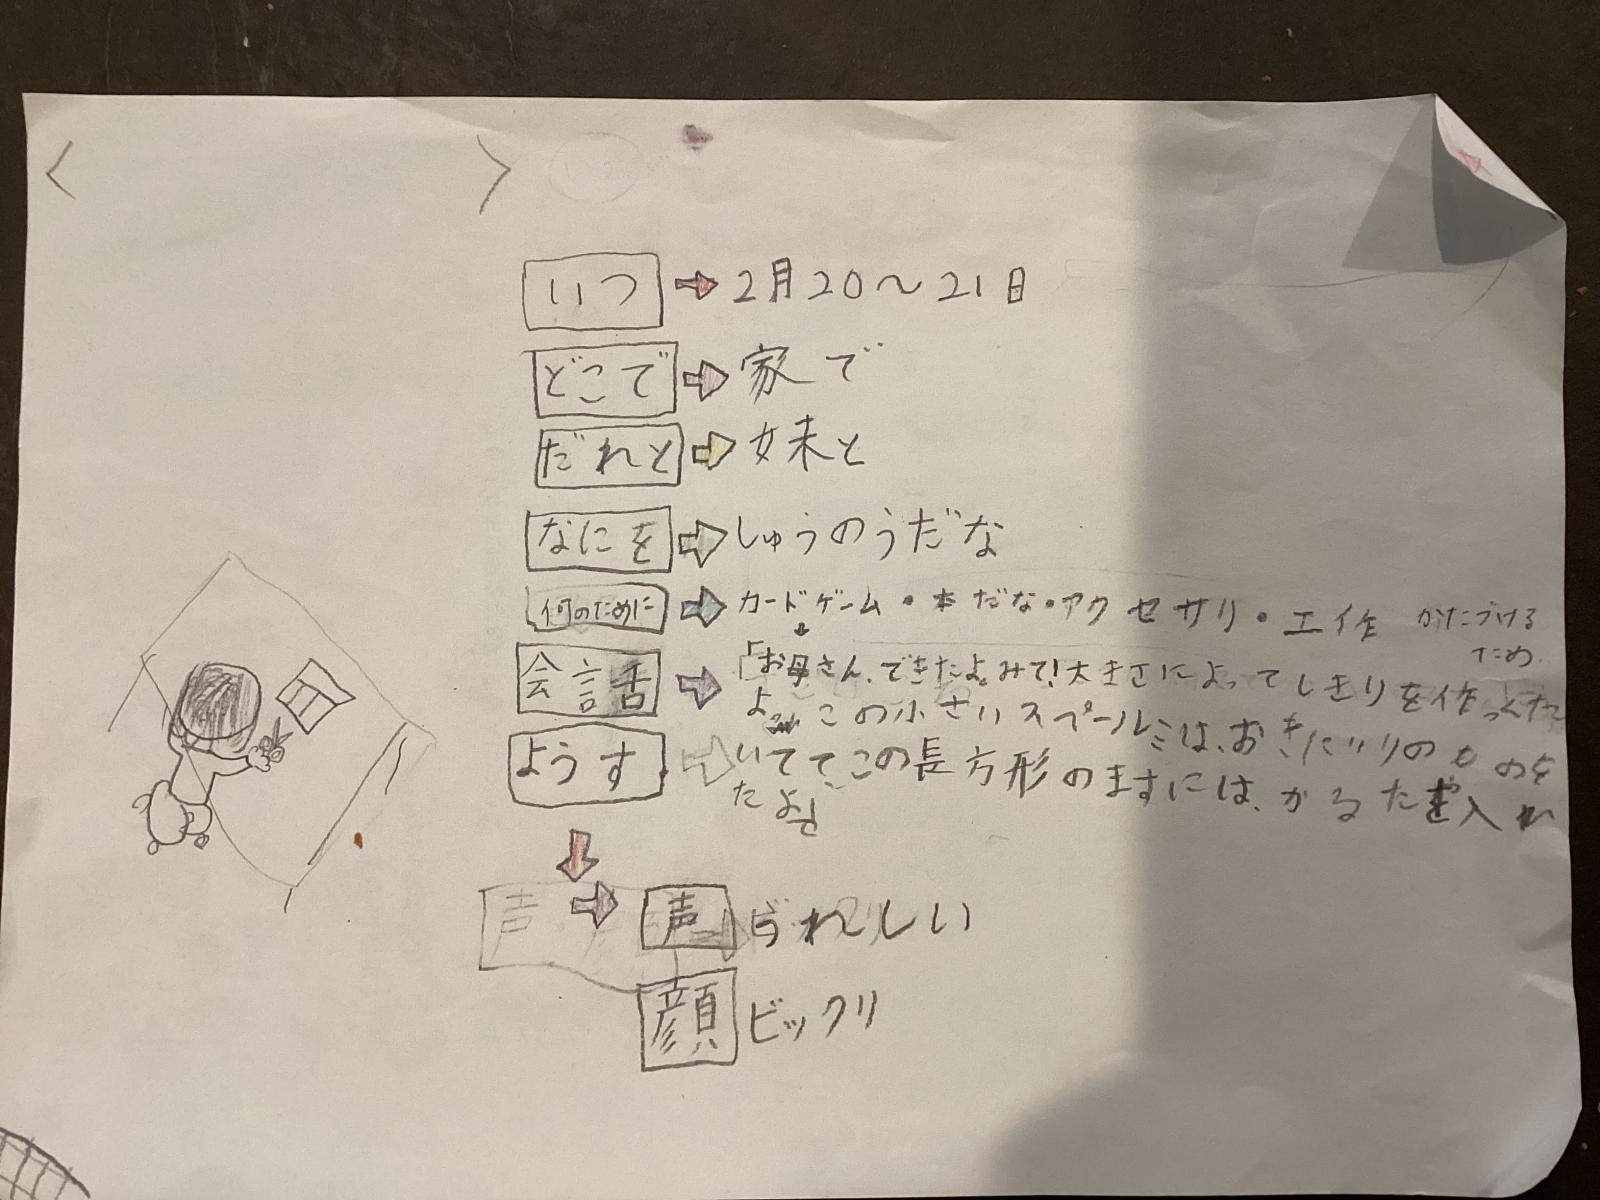 いつ → 2月20〜21日
どこで → 家で
だれと → 妹と
なにを → しゅうのうだな
何のために → カードゲーム・本だな・アクセサリ・工作 かたづける
ため
会話 → 「お母さん、できたよ。みて!大きさによってしきりを作っ
よ。この小さいスペールミは、おきにいりのものを
ようす いててこの長方形のますには、かるたを入
たよと
声 うれしい
顔 ビックリ